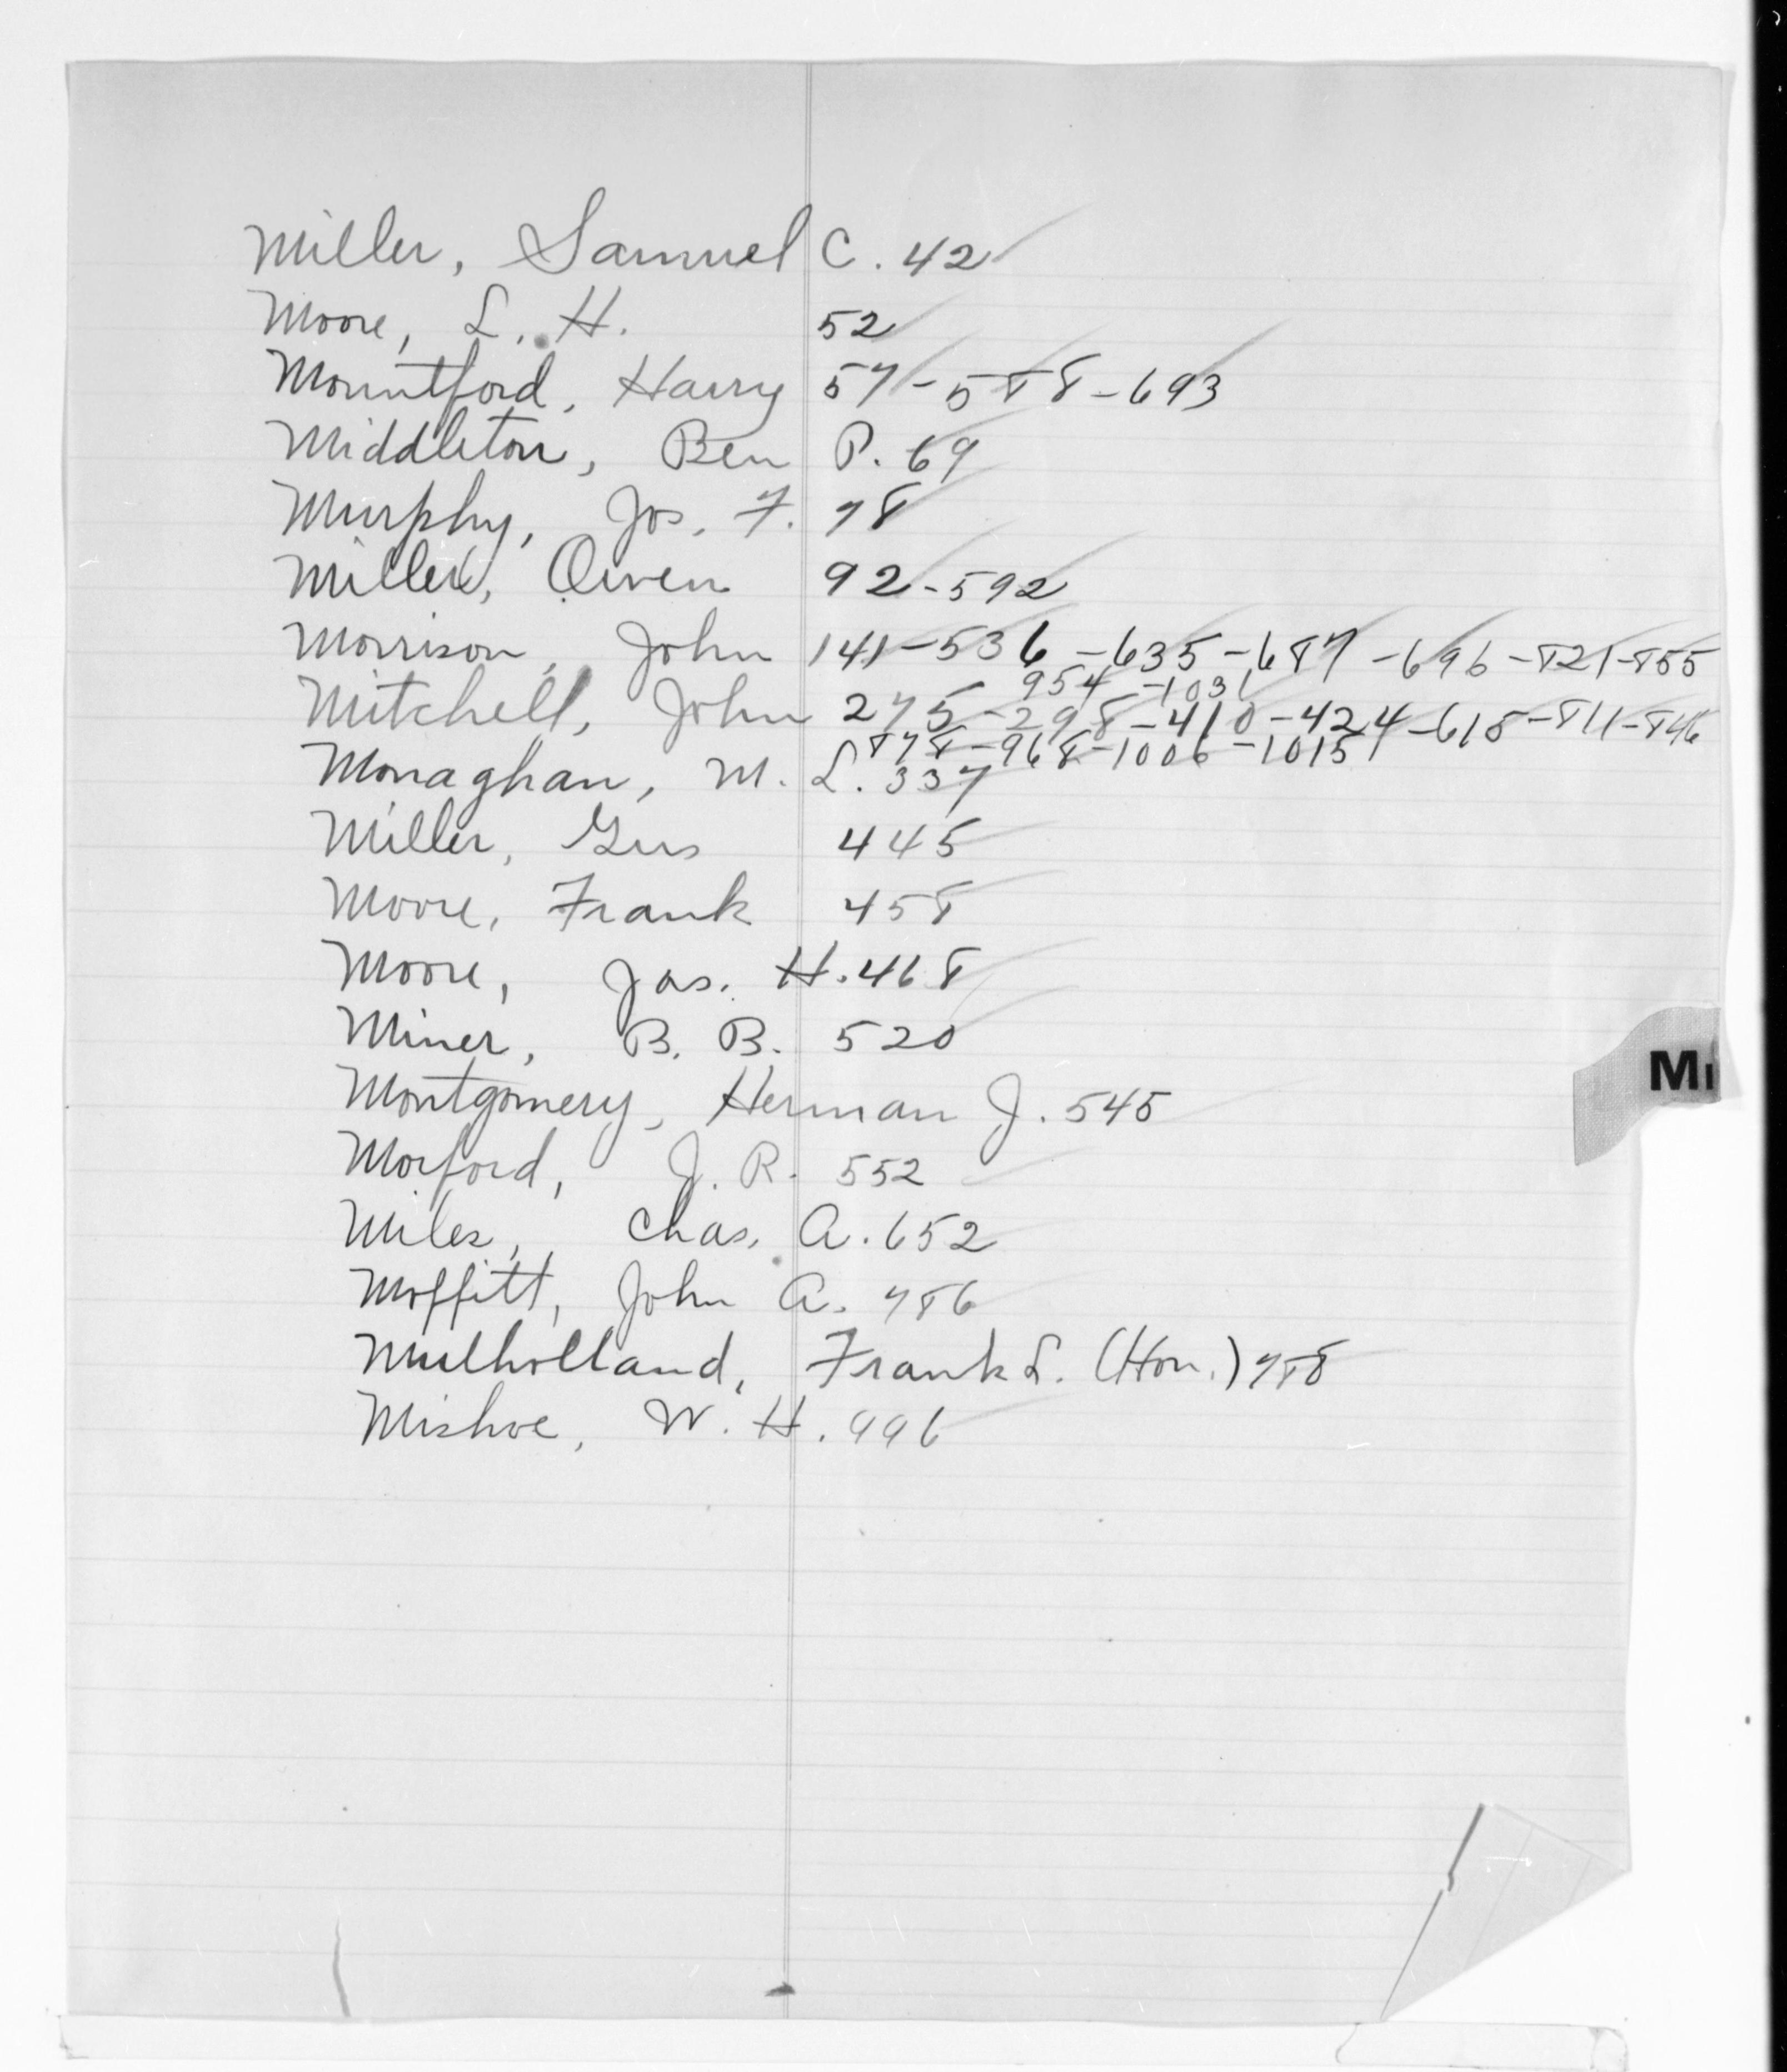 Miller, Samuel C. 42
Moore, L. H. 52
Mountford, Harry 57-588-693
Middleton, Ben P. 69
Murphy, Jos. F. 78
Miller, Owen 92-592
Morrison, John 141-536-635-687-696-821-855
954-1031
Mitchell, John 275-298-410-424-615-811-846
878-968-1006-1015
Monaghan, M. L. 337
Miller, Gus 445
Moore, Frank 458
Moore, Jas. H. 468
Miner, B. B. 520
Montgomery, Herman J. 545
Morford, J. R. 552
Miles, Chas. A. 652
Moffitt, John A. 786
Mulholland, Frank L. (Hon.) 788
Mishoe, W. H. 996